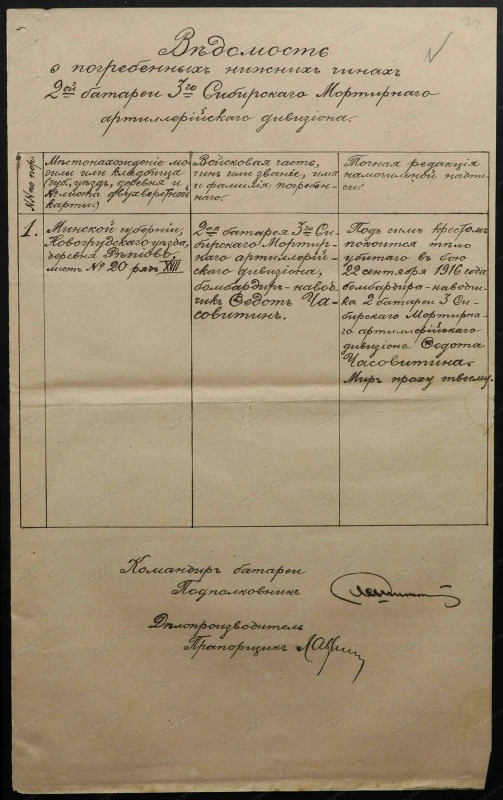 Вѣдомость
о погребенныхъ нижнихъ чинахъ
2ой батареи 3го Сибирскаго Мортирнаго
артиллерійскаго дивизіона.
№№ по пор.
Мѣстонахожденіе мо-
гилы или кладбища
(губ., уѣздъ, деревня и
№ листа двухверстной
карты)
Войсковая часть,
чинъ или званіе, имя
и фамилія погребен-
наго.
Точная редакція
намогильной надпи-
си:
1.
Минской губерніи,
Новогрудскаго уѣзда,
деревня
листъ № 20 рядъ XVII
2ая батарея 3го Си-
бирскаго Мортир-
наго артиллерій-
скаго дивизіона,
бомбардиръ-наво-
чикъ Ѳедотъ Ча-
совитинъ.
Подъ симъ крестомъ
покоится тѣло
убитаго въ бою
22 сентября 1916 года
бомбардира-наводчи-
ка 2 батареи 3 Си-
бирскаго Мортирна-
го артиллерійскаго
дивизіона Ѳедота
Часовитина.
Миръ праху твоему.
Командиръ батареи
Подполковникъ
Дѣлопроизводитель
Прапорщикъ